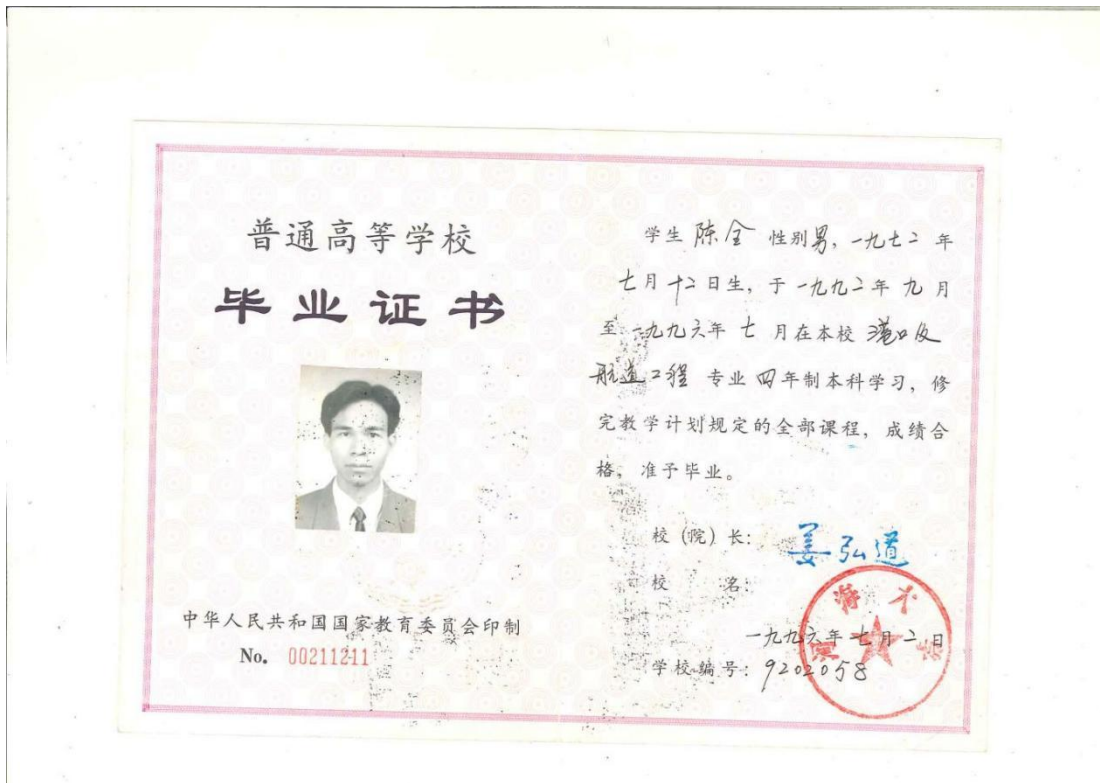 普通高等学校
毕业证书
中华人民共和国国家教育委员会印制
No. 00211211
学生 陈全 性别男，一九七二年
七月十二日生，于一九九二年九月
至一九九六年七月在本校 港口及
航道工程 专业四年制本科学习，修
完教学计划规定的全部课程，成绩合
格，准予毕业。
校（院）长：姜弘道
校 名：
一九九六年七月二日
学校编号：9202058
河海大学